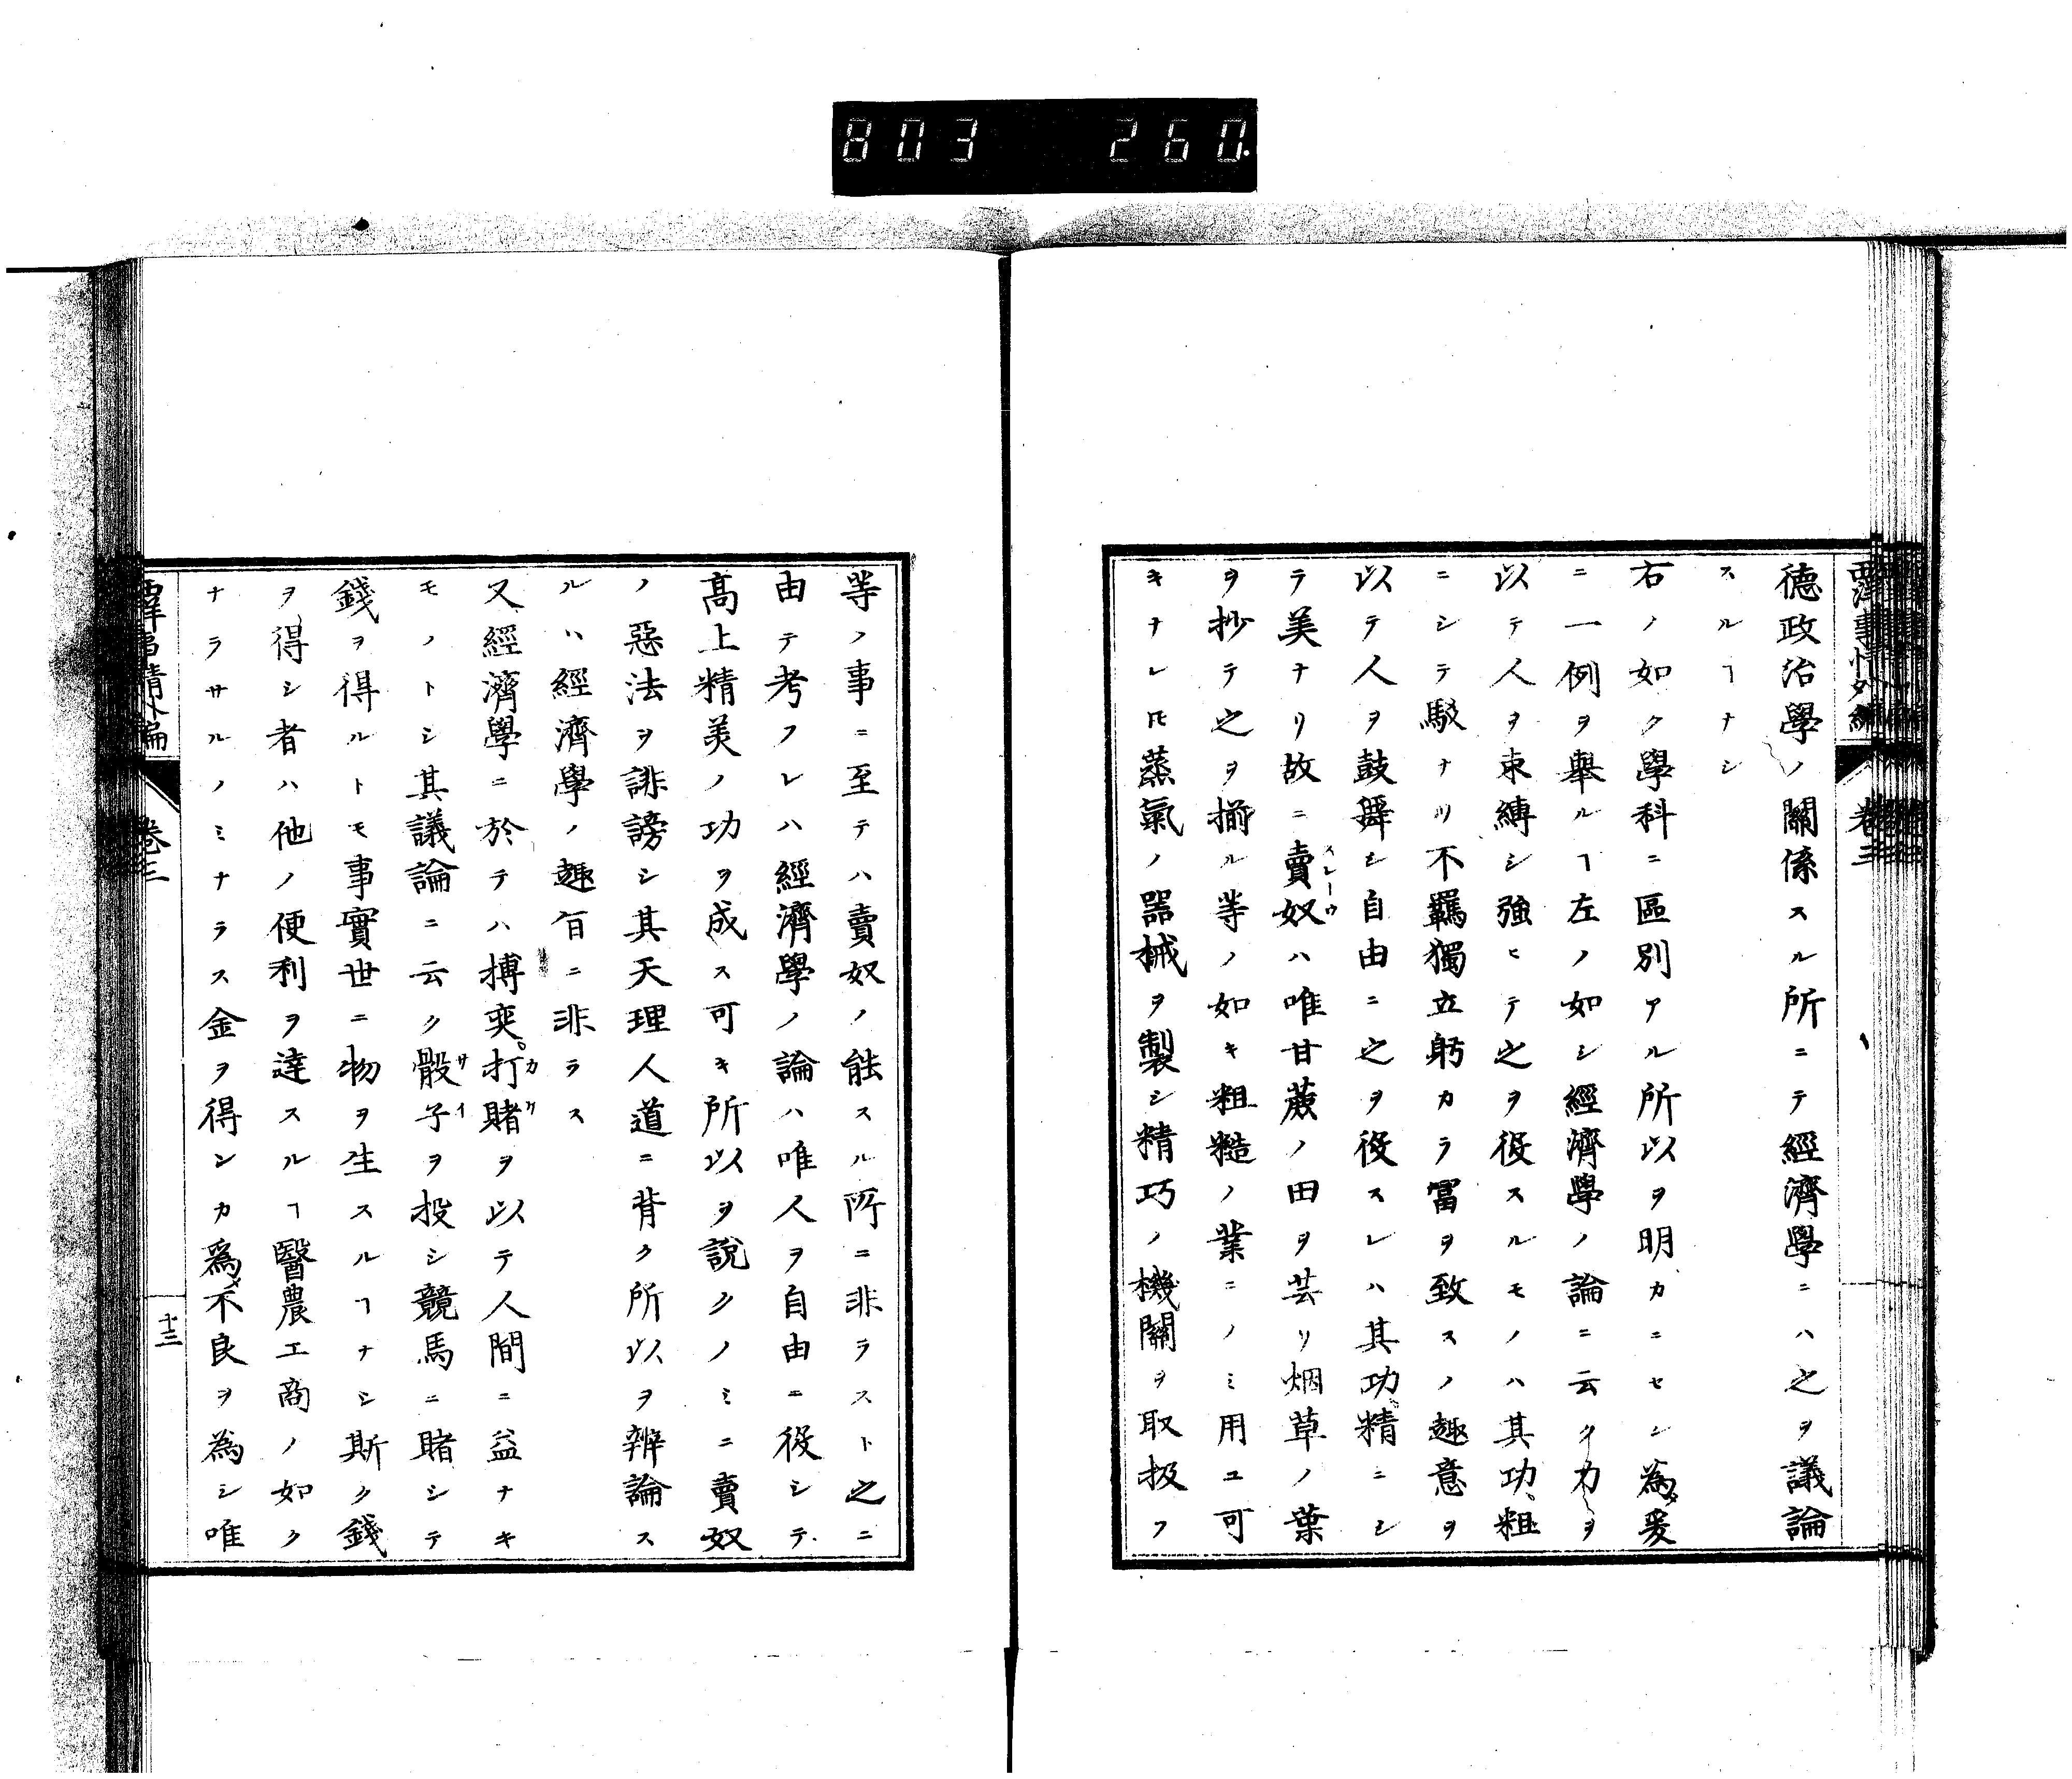 803 260.
西洋事情外編 卷三
德政治學ノ關係スル所ニテ經濟學ニハ之ヲ議論
スルヿナシ
右ノ如ク學科ニ區別アル所以ヲ明カニセン為メ爰
ニ一例ヲ舉ルヿ左ノ如シ經濟學ノ論ニ云ク力ヲ
以テ人ヲ束縛シ強ヒテ之ヲ役スルモノハ其功粗
ニシテ駁ナリ不羈獨立躬カラ冨ヲ致スノ趣意ヲ
以テ人ヲ鼓舞シ自由ニ之ヲ役スレハ其功精ニシ
テ美ナリ故ニ賣奴ハ唯甘蔗ノ田ヲ芸リ烟草ノ葉
ヲ抄テ之ヲ揃ル等ノ如キ粗糙ノ業ニノミ用ユ可
キナレ𪜈蒸氣ノ器械ヲ製シ精巧ノ機關ヲ取扱フ
等ノ事ニ至テハ賣奴ノ能スル所ニ非ラスト之ニ
由テ考フレハ經濟學ノ論ハ唯人ヲ自由ニ役シテ
高上精美ノ功ヲ成ス可キ所以ヲ說クノミニ賣奴
ノ惡法ヲ誹謗シ其天理人道ニ背ク所以ヲ辨論ス
ルハ經濟學ノ趣旨ニ非ラス
又經濟學ニ於テハ摶奕打賭ヲ以テ人間ニ益ナキ
モノトシ其議論ニ云ク骰子ヲ投シ競馬ニ賭シテ
錢ヲ得ルトモ事實世ニ物ヲ生スルヿナシ斯ク錢
ヲ得シ者ハ他ノ便利ヲ達スルヿ醫農工商ノ如ク
ナラサルノミナラス金ヲ得ンカ爲メ不良ヲ為シ唯
西洋事情外編 卷三 十三